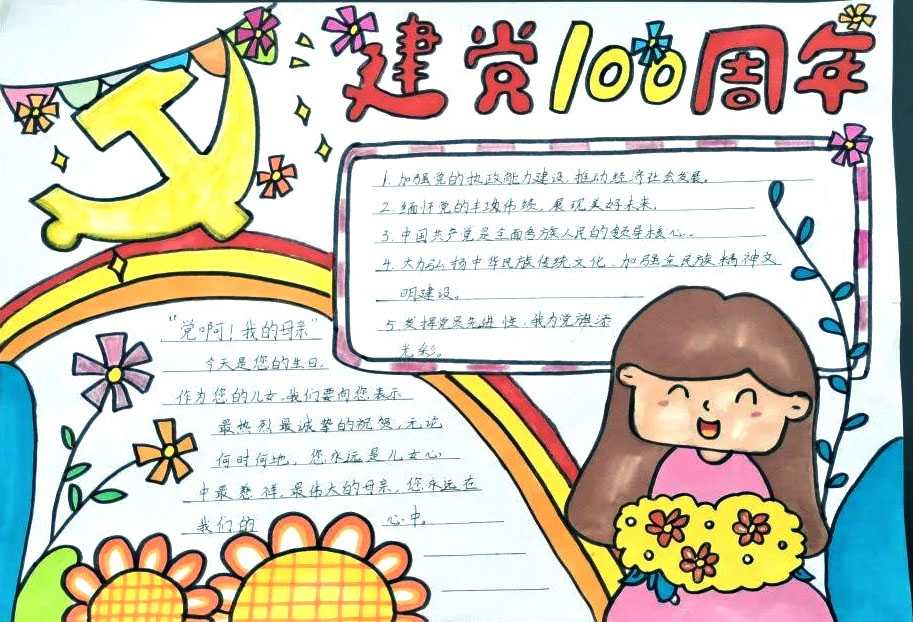 建党100周年
1.加强党的执政能力建设,推动经济社会发展。
2.缅怀党的丰功伟绩,展现美好未来。
3.中国共产党是全面各族人民的领导核心。
4.大力弘扬中华民族传统文化,加强全民族精神文
明建设。
5.发挥党员先进性,我为党旗添
光彩。
“党啊!我的母亲”
今天是您的生日,
作为您的儿女,我们要向您表示
最热烈最诚挚的祝贺,无论
何时何地,您永远是儿女心
中最慈祥,最伟大的母亲,您永远在
我们的 心中。